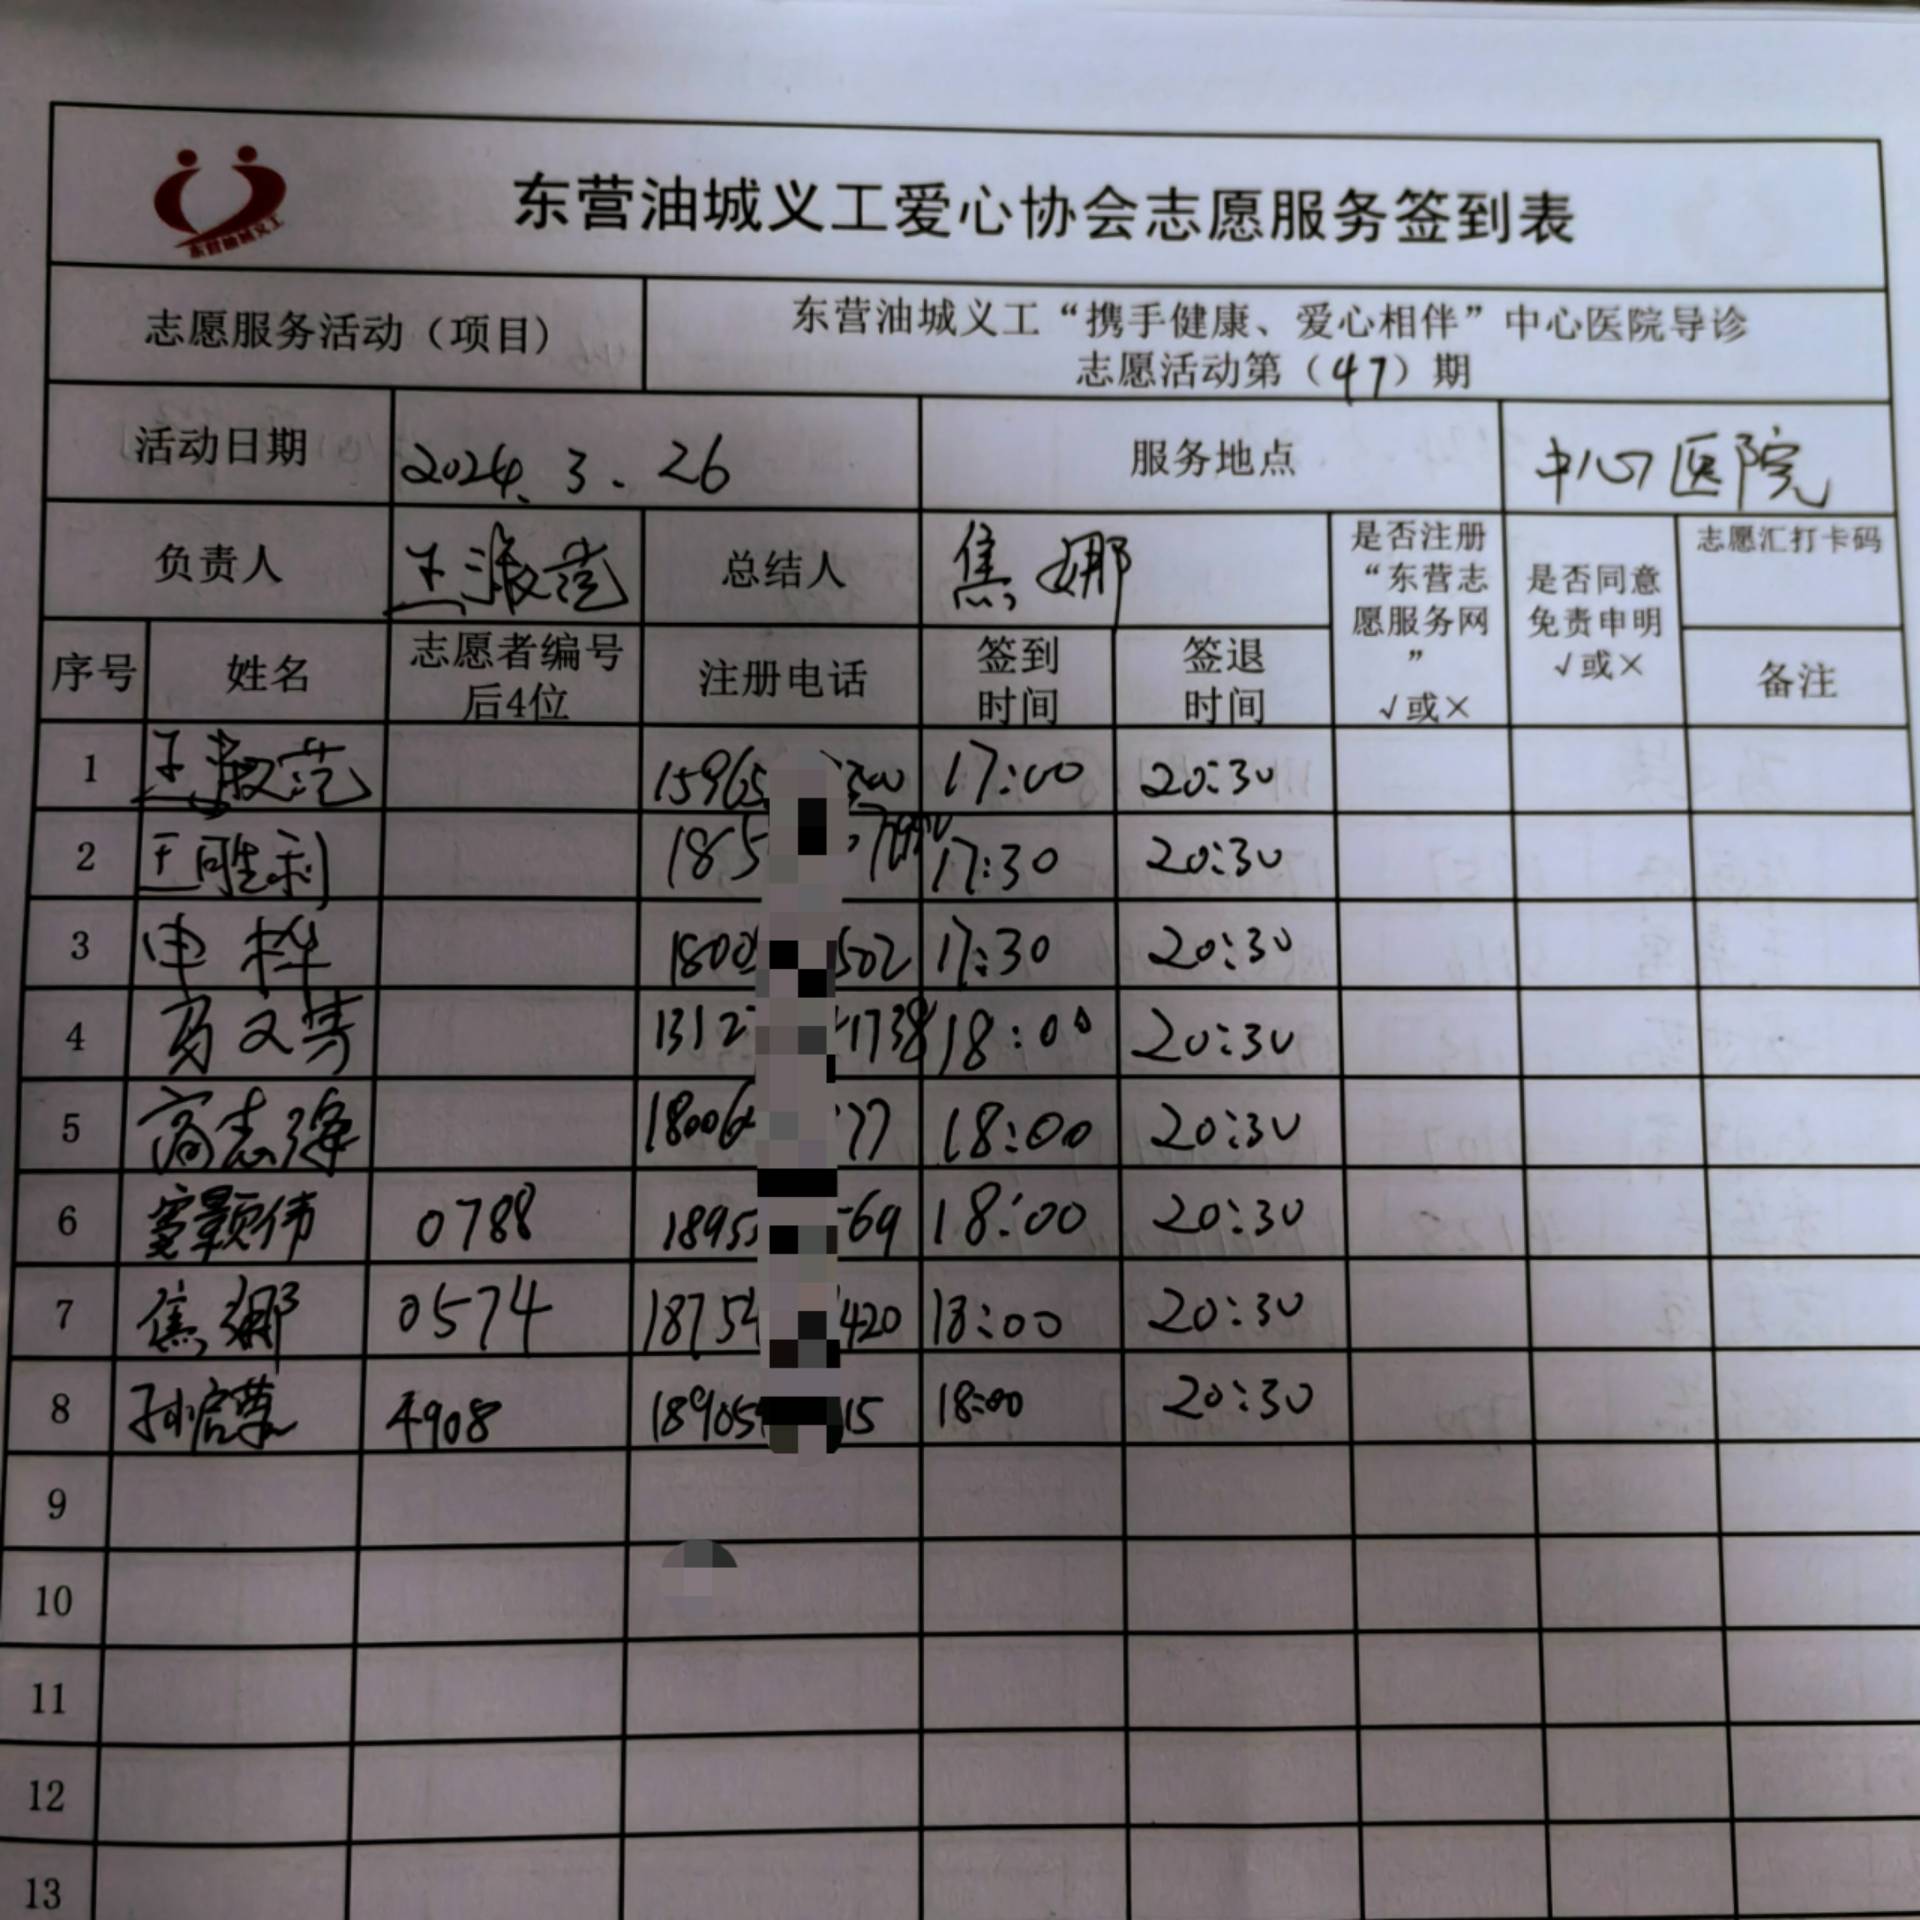 东营油城义工
东营油城义工爱心协会志愿服务签到表
志愿服务活动（项目）
东营油城义工“携手健康、爱心相伴”中心医院导诊
志愿活动第（47）期
活动日期 2024.3.26 服务地点 中心医院
负责人 王淑范 总结人 焦娜
是否注册
“东营志
愿服务网
”
√或×
是否同意
免责申明
√或×
志愿汇打卡码
序号 姓名
志愿者编号
后4位
注册电话
签到
时间
签退
时间
备注
1 王淑范 15965 17:00 20:30
2 王胜利 185 17:30 20:30
3 申桦 1800 502 17:30 20:30
4 文芳 1312 1738 18:00 20:30
5 高志强 18006 77 18:00 20:30
6 颖伟 0788 1895 69 18:00 20:30
7 焦娜 0574 18754 420 18:00 20:30
8 孙 4908 18905 15 18:00 20:30
9
10
11
12
13